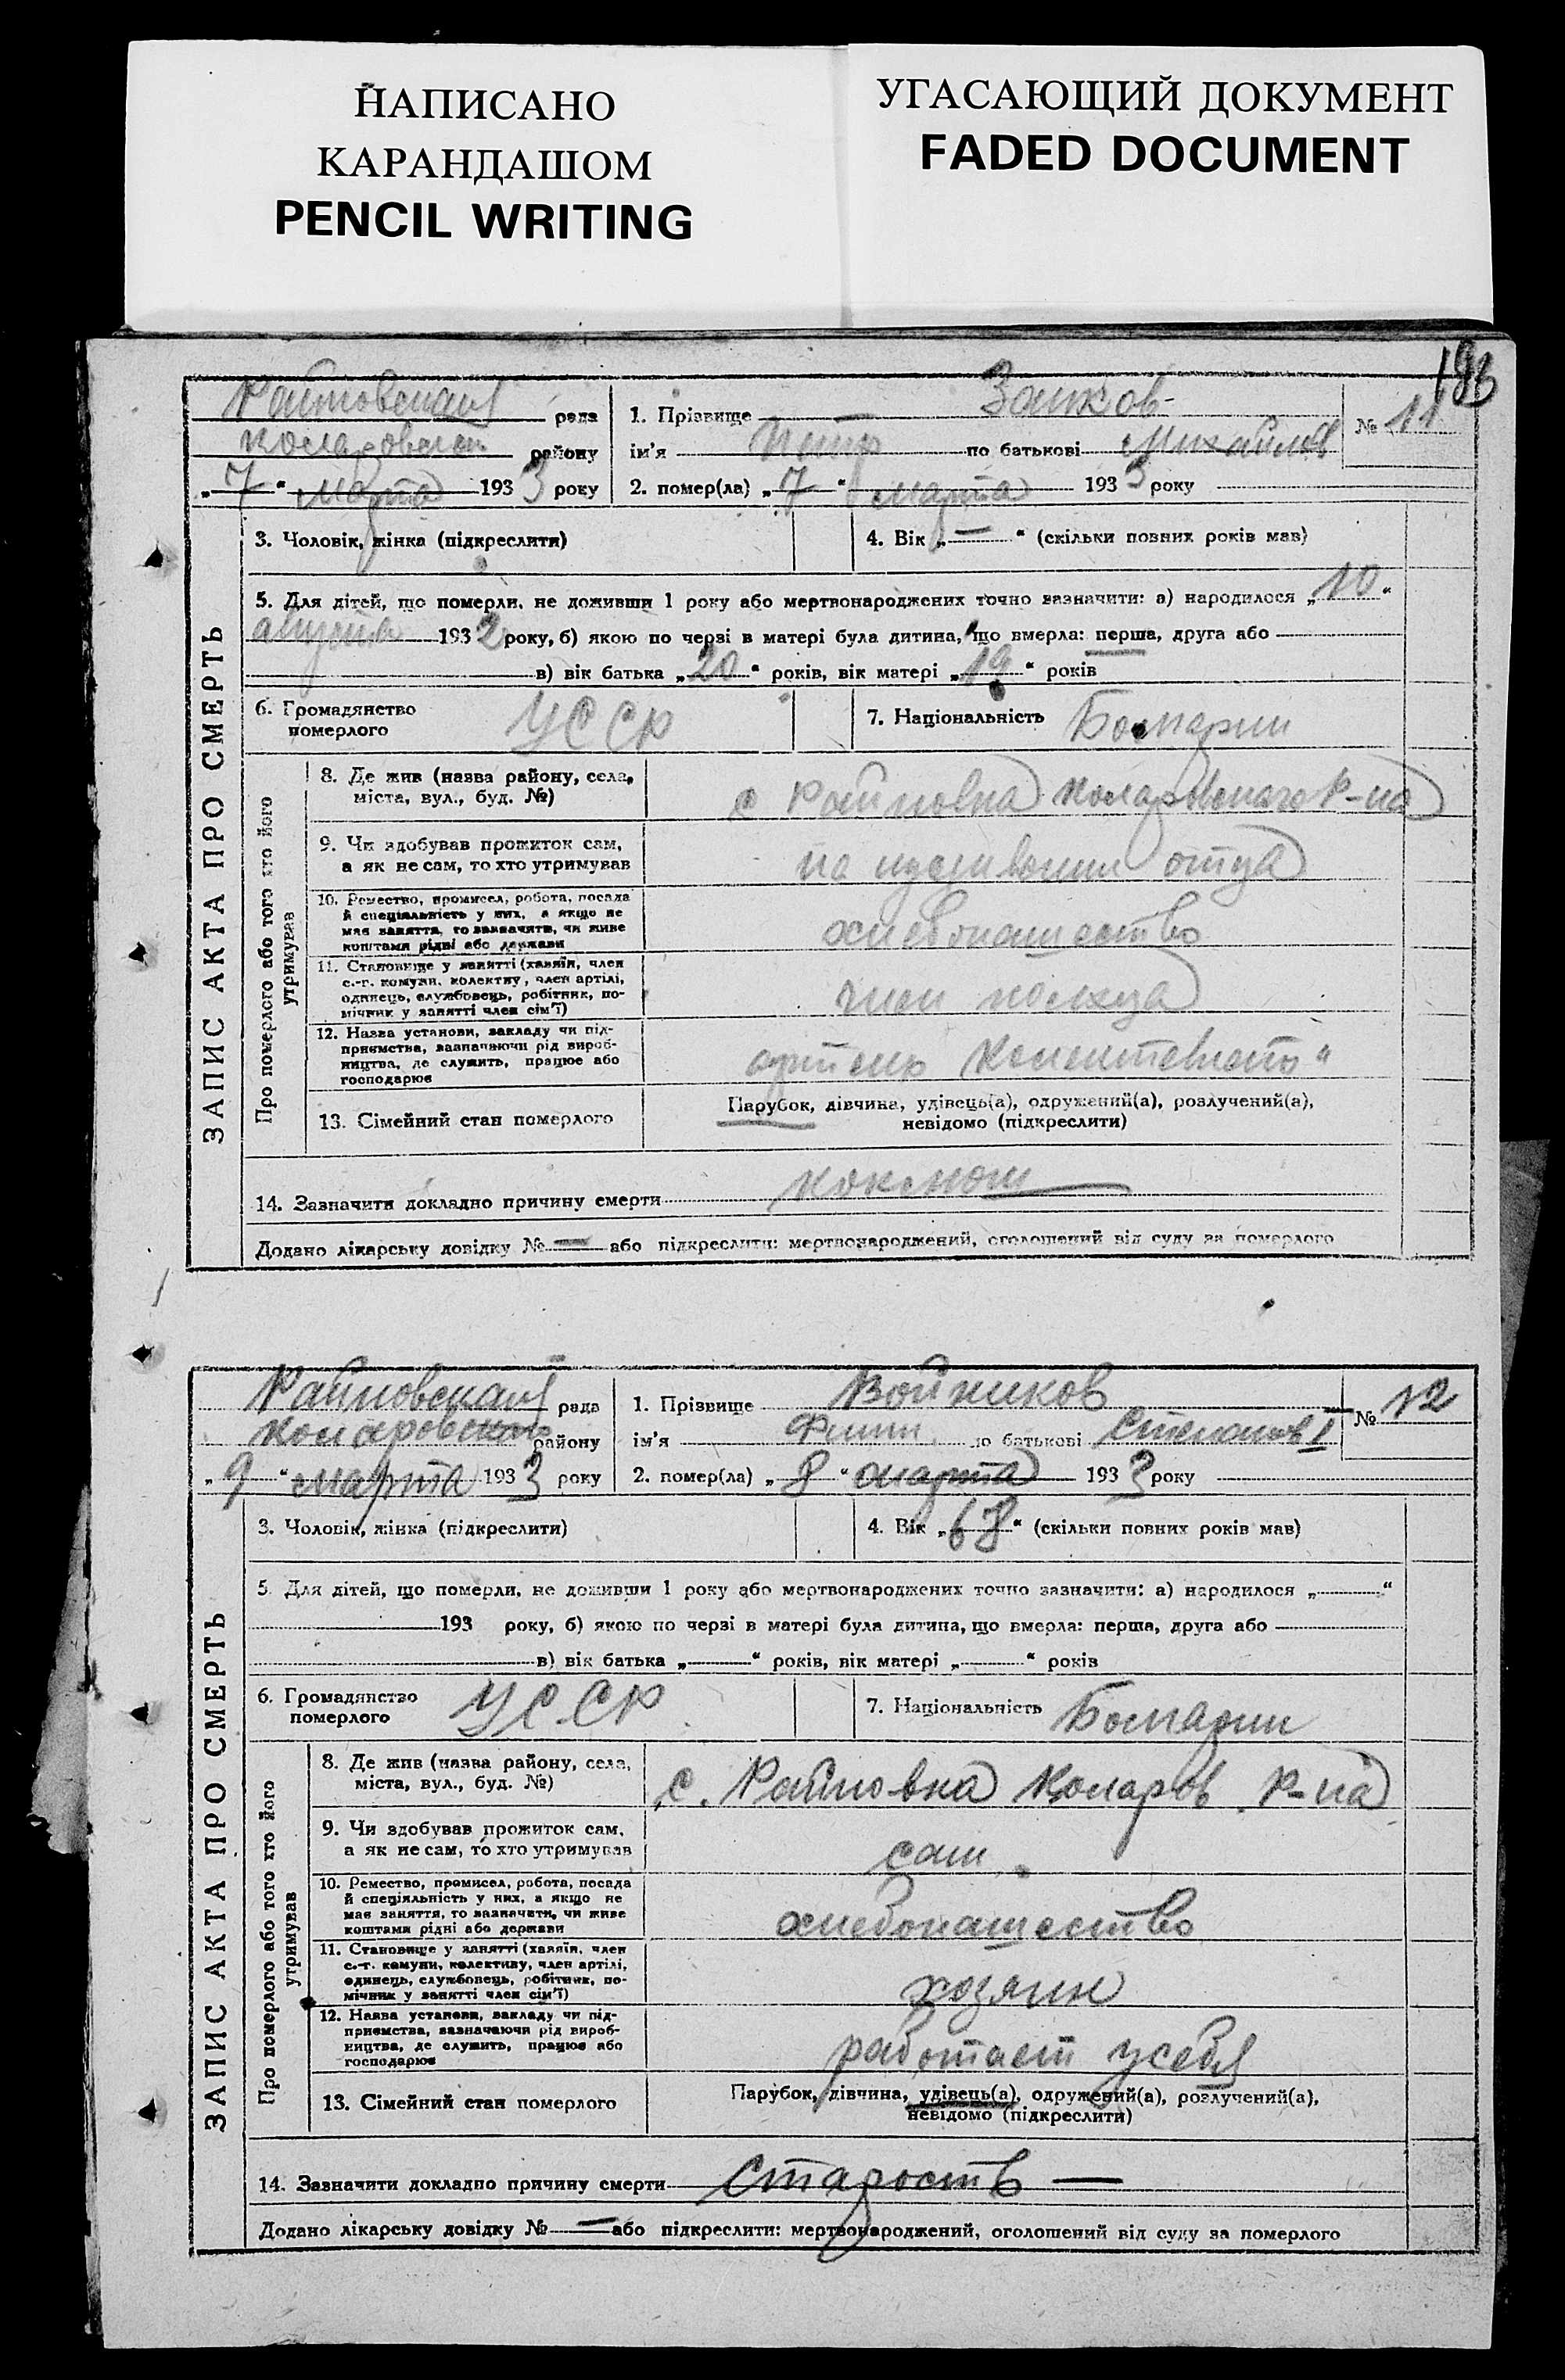 НАПИСАНО
КАРАНДАШОМ
PENCIL WRITING
УГАСАЮЩИЙ ДОКУМЕНТ
FADED DOCUMENT
193
ЗАПИС АКТА ПРО СМЕРТЬ
Райновская рада
Коларовского району
„7“ марта 1933 року
1. Прізвище Заиков
ім'я Петр по батькові Михайлов
№ 11
2. помер(ла) „7“ марта 1933 року
3. Чоловік, жінка (підкреслити)
4. Вік „—“ (скільки повних років мав)
5. Для дітей, що померли, не доживши 1 року або мертвонароджених точно зазначити: а) народилося „10“
августа 1932 року, б) якою по черзі в матері була дитина, що вмерла: перша, друга або
в) вік батька „20“ років, вік матері „19“ років
6. Громадянство
померлого
УССР
7. Національність Болгарин
Про померлого або того хто його
утримував
8. Де жив (назва району, села,
міста, вул., буд. №)
с Райновка Коларовского Р-на
9. Чи здобував прожиток сам,
а як не сам, то хто утримував
на иждивении отца
10. Ремество, промисел, робота, посада
й спеціяльність у них, а якщо не
має заняття, то зазначити, чи живе
коштами рідні або держави
хлебопашество
11. Становище у занятті (хазяїн, член
с.-г. комуни, колективу, член артілі,
одинець, службовець, робітник, по-
мічник у занятті член сім'ї)
член колхоза
12. Назва установи, закладу чи під-
приємства, зазначаючи рід вироб-
ництва, де служить, працює або
господарює
артель
13. Сімейний стан померлого
Парубок, дівчина, удівець(а), одружений(а), розлучений(а),
невідомо (підкреслити)
14. Зазначити докладно причину смерти коклюш
Додано лікарську довідку № — або підкреслити: мертвонароджений, оголошений від суду за померлого
ЗАПИС АКТА ПРО СМЕРТЬ
Райновская рада
Коларовского району
„9“ марта 1933 року
1. Прізвище Войников
ім'я Филип по батькові Степанов
№ 12
2. помер(ла) „8“ марта 1933 року
3. Чоловік, жінка (підкреслити)
4. Вік „68“ (скільки повних років мав)
5. Для дітей, що померли, не доживши 1 року або мертвонароджених точно зазначити: а) народилося „ “
193 року, б) якою по черзі в матері була дитина, що вмерла: перша, друга або
в) вік батька „ “ років, вік матері „ “ років
6. Громадянство
померлого
УССР
7. Національність Болгарин
Про померлого або того хто його
утримував
8. Де жив (назва району, села,
міста, вул., буд. №)
с. Райновка Коларов. Р-на
9. Чи здобував прожиток сам,
а як не сам, то хто утримував
сам
10. Ремество, промисел, робота, посада
й спеціяльність у них, а якщо не
має заняття, то зазначити, чи живе
коштами рідні або держави
хлебопашество
11. Становище у занятті (хазяїн, член
с.-г. комуни, колективу, член артілі,
одинець, службовець, робітник, по-
мічник у занятті член сім'ї)
хозяин
12. Назва установи, закладу чи під-
приємства, зазначаючи рід вироб-
ництва, де служить, працює або
господарює
работает у себя
13. Сімейний стан померлого
Парубок, дівчина, удівець(а), одружений(а), розлучений(а),
невідомо (підкреслити)
14. Зазначити докладно причину смерти Старость —
Додано лікарську довідку № — або підкреслити: мертвонароджений, оголошений від суду за померлого